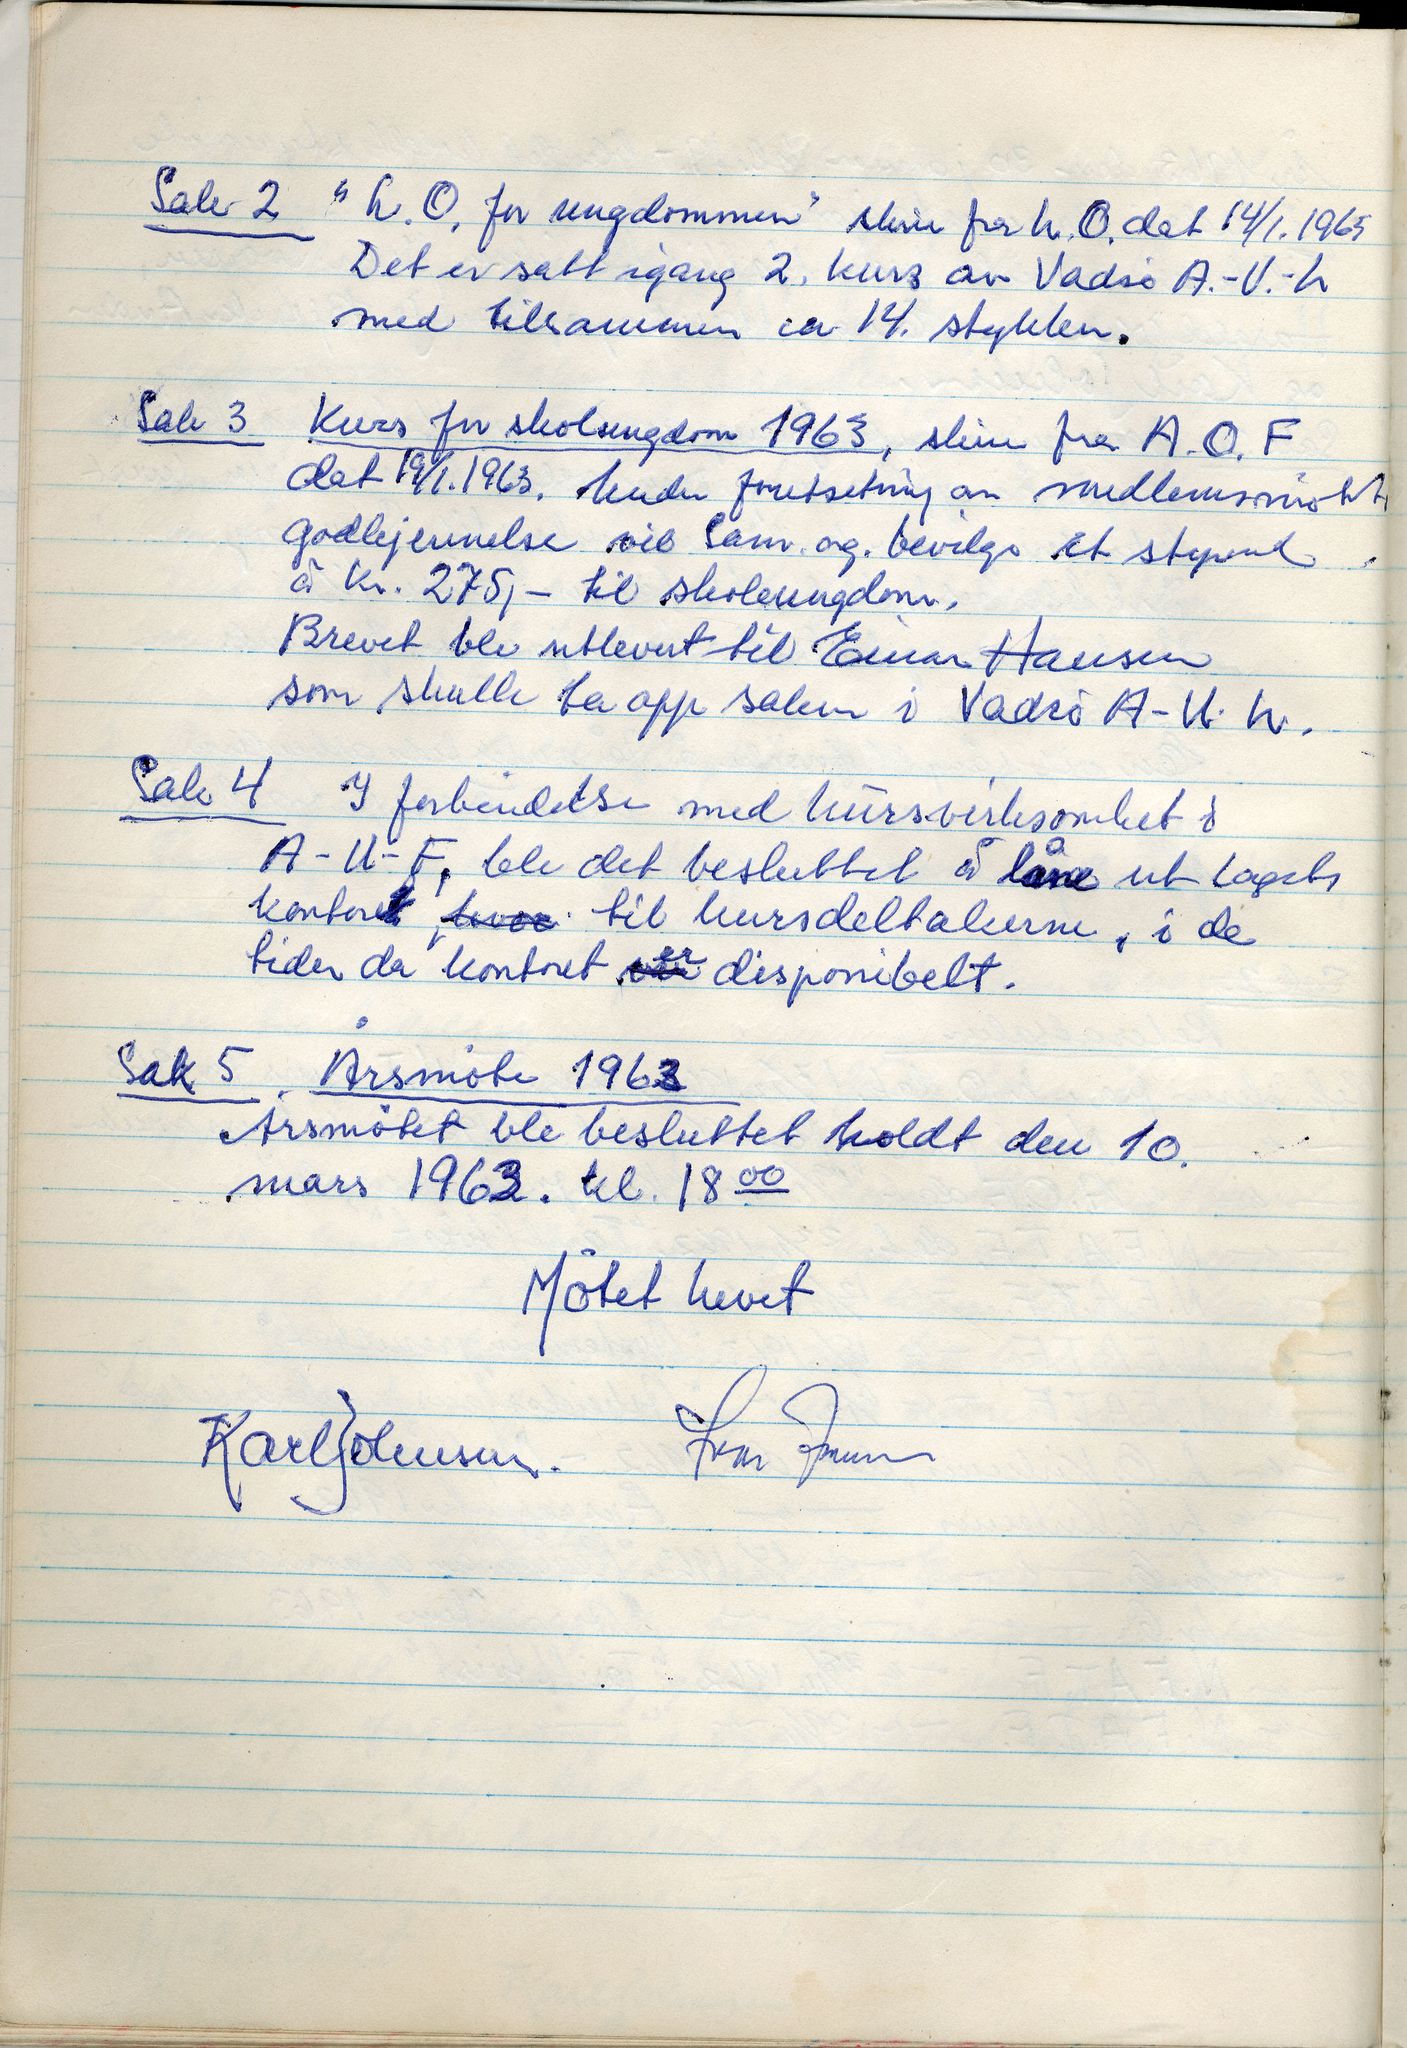 Sak 2 "L.O. for ungdommen" skriv fra L.O. dat 14/1. 1963
Det er satt igang 2. kurs av Vadsö A.-U.-L
med tilsammen ca 14. stykker.
Sak 3 Kurs for skoleungdom 1963, skriv fra A.O.F
dat 19/1. 1963. Under foretsetning av medlemsmötets
godkjennelse vil Sam. og. bevilge et stipend
à kr. 275,- til skoleungdom.
Brevet ble utlevert til Einar Hansen
som skulle ta opp saken i Vadsö A-U.L.
Sak 4 I forbindelse med kursvirksomhet i
A-U-F, ble det besluttet å låne ut lagets
kontoret, hvor til kursdeltakerne, i de
tider da kontoret er disponibelt.
Sak 5. Årsmöte 1963
Årsmötet ble besluttet holdt den 10.
mars 1963. kl. 18 00
Mötet hevet
Karl Johnsen.